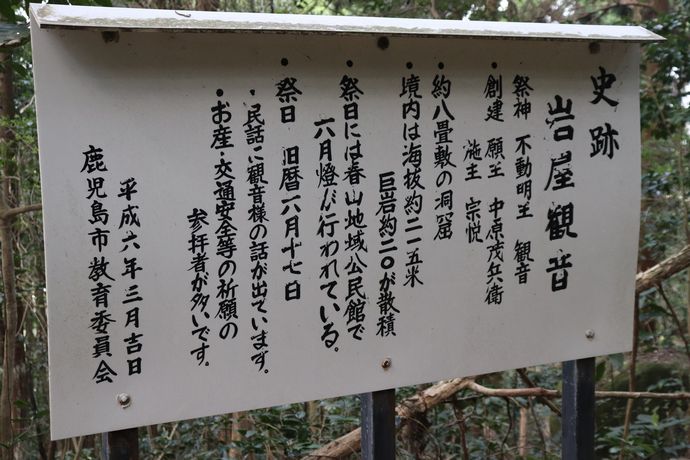 史跡
岩屋観音
祭神 不動明王 観音
・創建 願主 中原茂兵衛
施主 宗悦
・約八畳敷の洞窟
・境内は海抜約二一五米
巨岩約二〇が散積
・祭日には春山地域公民館で
六月燈が行われている。
・祭日 旧暦六月十七日
・民話に観音様の話が出ています。
・お産・交通安全等の祈願の
参拝者が多いです。
平成六年三月吉日
鹿児島市教育委員会